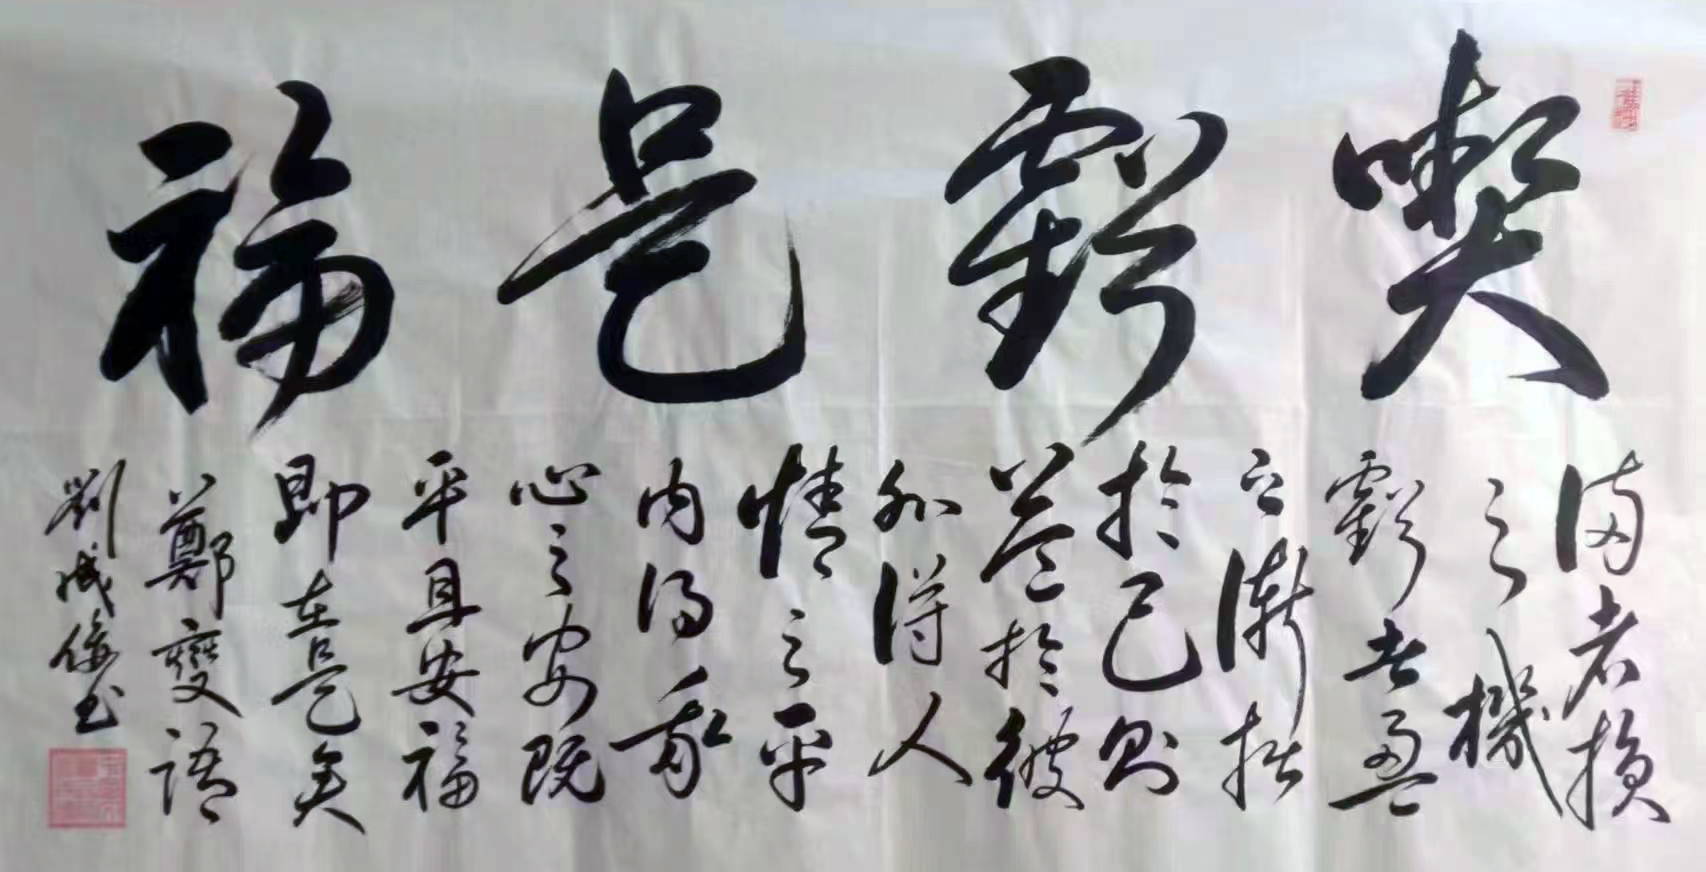 喫虧是福
滿者損
之機
虧者盈
之漸損
於己則
益於彼
外得人
情之平
内得我
心之安既
平且安福
即在是矣
鄭燮語
劉成书